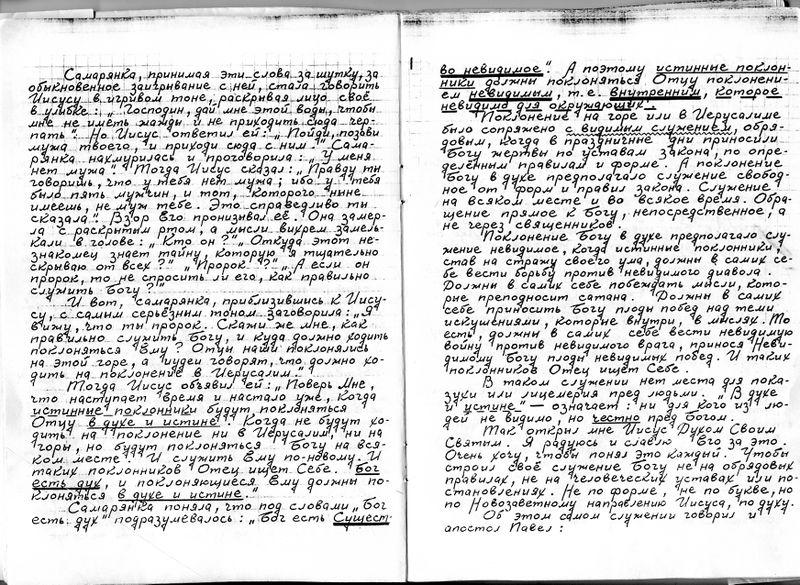 Самарянка, принимая эти слова за шутку, за
обыкновенное заигрывание с ней, стала говорить
Иисусу в игривом тоне, раскрывая лицо своё
в улыбке: „Господин, дай мне этой воды, чтобы
мне не иметь жажды и не приходить сюда чер-
пать". Но Иисус ответил ей: „Пойди, позови
мужа твоего, и приходи сюда с ним". Сама-
рянка нахмурилась и проговорила: „У меня
нет мужа". Тогда Иисус сказал: „Правду ты
говоришь, что у тебя нет мужа; ибо у тебя
было пять мужчин, и тот, которого ныне
имеешь, не муж тебе. Это справедливо ты
сказала". Взор Его пронизывал её. Она замер-
ла с раскрытым ртом, а мысли вихрем замель-
кали в голове: „Кто он?" „Откуда этот не-
знакомец знает тайну, которую я тщательно
скрываю от всех?" „Пророк!?" „А если он
пророк, то не спросить ли его, как правильно
служить Богу?"
И вот, самарянка, приблизившись к Иису-
су, с самым серьёзным тоном заговорила: „Я
вижу, что ты пророк. Скажи же мне, как
правильно служить Богу, и куда должно ходить
поклоняться Ему? Отцы наши поклонялись
на этой горе, а иудеи говорят, что должно хо-
дить на поклонение в Иерусалим."
Тогда Иисус объявил ей: „Поверь Мне,
что наступает время и настало уже, когда
истинные поклонники будут поклоняться
Отцу в духе и истине". Когда не будут хо-
дить на поклонение ни в Иерусалим, ни на
горы, но будут поклоняться Богу на вся-
ком месте. И служить Ему по-новому. И
таких поклонников Отец ищет Себе. Бог
есть дух, и поклоняющиеся Ему должны по-
клоняться в духе и истине."
Самарянка поняла, что под словами „Бог
есть дух" подразумевалось: „Бог есть Сущест-
во невидимое". А поэтому истинные поклон-
ники должны поклоняться Отцу поклонени-
ем невидимым, т.е. внутренним, которое
невидимо для окружающих.
Поклонение на горе или в Иерусалиме
было сопряжено с видимым служением, обря-
довым, когда в праздничные дни приносили
Богу жертвы по уставам закона, по опре-
делённым правилам и форме. А поклонение
Богу в духе предполагало служение свобод-
ное от форм и правил закона. Служение
на всяком месте и во всякое время. Обра-
щение прямое к Богу, непосредственное, а
не через священников.
Поклонение Богу в духе предполагало слу-
жение невидимое, когда истинные поклонники,
став на стражу своего ума, должны в самих се-
бе вести борьбу против невидимого диавола.
Должны в самих себе побеждать мысли, кото-
рые преподносит сатана. Должны в самих
себе приносить Богу плоды побед над теми
искушениями, которые внутри, в мыслях. То
есть, должны в самих себе вести невидимую
войну против невидимого врага, принося Неви-
димому Богу плоды невидимых побед. И таких
поклонников Отец ищет Себе.
В таком служении нет места для пока-
зухи или лицемерия пред людьми. „В духе
и истине" — означает: ни для кого из лю-
дей не видимо, но честно пред Богом.
Так открыл мне Иисус Духом Своим
Святым. Я радуюсь и славлю Его за это.
Очень хочу, чтобы понял это каждый. Чтобы
строил своё служение Богу не на обрядовых
правилах, не на человеческих уставах или по-
становлениях. Не по форме, не по букве, но
по Новозаветному направлению Иисуса, по духу.
Об этом самом служении говорил и
апостол Павел: